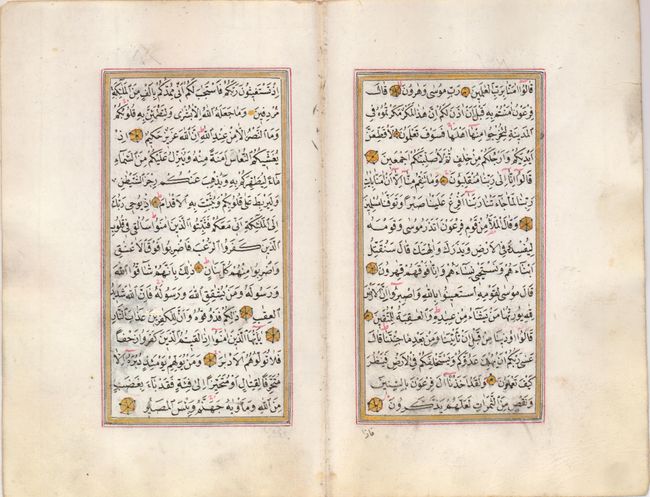 قَالُوا اٰمَنَّا بِرَبِّ الْعٰلَمِينَ رَبِّ مُوسٰى وَهٰرُونَ قَالَ
فِرْعَوْنُ اٰمَنْتُمْ بِهِ قَبْلَ اَنْ اٰذَنَ لَكُمْ اِنَّ هٰذَا لَمَكْرٌ مَكَرْتُمُوهُ فِي
الْمَدِينَةِ لِتُخْرِجُوا مِنْهَا اَهْلَهَا فَسَوْفَ تَعْلَمُونَ لَاُقَطِّعَنَّ
اَيْدِيَكُمْ وَاَرْجُلَكُمْ مِنْ خِلَافٍ ثُمَّ لَاُصَلِّبَنَّكُمْ اَجْمَعِينَ
قَالُوا اِنَّا اِلٰى رَبِّنَا مُنْقَلِبُونَ وَمَا تَنْقِمُ مِنَّا اِلَّا اَنْ اٰمَنَّا بِاٰيَاتِ
رَبِّنَا لَمَّا جَاءَتْنَا رَبَّنَا اَفْرِغْ عَلَيْنَا صَبْرًا وَتَوَفَّنَا مُسْلِمِينَ
وَقَالَ الْمَلَاُ مِنْ قَوْمِ فِرْعَوْنَ اَتَذَرُ مُوسٰى وَقَوْمَهُ
لِيُفْسِدُوا فِي الْاَرْضِ وَيَذَرَكَ وَاٰلِهَتَكَ قَالَ سَنُقَتِّلُ
اَبْنَاءَهُمْ وَنَسْتَحْيِي نِسَاءَهُمْ وَاِنَّا فَوْقَهُمْ قَاهِرُونَ
قَالَ مُوسٰى لِقَوْمِهِ اسْتَعِينُوا بِاللّٰهِ وَاصْبِرُوا اِنَّ الْاَرْضَ
لِلّٰهِ يُورِثُهَا مَنْ يَشَاءُ مِنْ عِبَادِهِ وَالْعَاقِبَةُ لِلْمُتَّقِينَ
قَالُوا اُوذِينَا مِنْ قَبْلِ اَنْ تَأْتِيَنَا وَمِنْ بَعْدِ مَا جِئْتَنَا قَالَ
عَسٰى رَبُّكُمْ اَنْ يُهْلِكَ عَدُوَّكُمْ وَيَسْتَخْلِفَكُمْ فِي الْاَرْضِ فَيَنْظُرَ
كَيْفَ تَعْمَلُونَ وَلَقَدْ اَخَذْنَا اٰلَ فِرْعَوْنَ بِالسِّنِينَ
وَنَقْصٍ مِنَ الثَّمَرَاتِ لَعَلَّهُمْ يَذَّكَّرُونَ
فاذا
اِذْ تَسْتَغِيثُونَ رَبَّكُمْ فَاسْتَجَابَ لَكُمْ اَنِّي مُمِدُّكُمْ بِاَلْفٍ مِنَ الْمَلٰئِكَةِ
مُرْدِفِينَ وَمَا جَعَلَهُ اللّٰهُ اِلَّا بُشْرٰى وَلِتَطْمَئِنَّ بِهِ قُلُوبُكُمْ
وَمَا النَّصْرُ اِلَّا مِنْ عِنْدِ اللّٰهِ اِنَّ اللّٰهَ عَزِيزٌ حَكِيمٌ اِذْ
يُغَشِّيكُمُ النُّعَاسَ اَمَنَةً مِنْهُ وَيُنَزِّلُ عَلَيْكُمْ مِنَ السَّمَاءِ
مَاءً لِيُطَهِّرَكُمْ بِهِ وَيُذْهِبَ عَنْكُمْ رِجْزَ الشَّيْطَانِ
وَلِيَرْبِطَ عَلٰى قُلُوبِكُمْ وَيُثَبِّتَ بِهِ الْاَقْدَامَ اِذْ يُوحِي رَبُّكَ
اِلَى الْمَلٰئِكَةِ اَنِّي مَعَكُمْ فَثَبِّتُوا الَّذِينَ اٰمَنُوا سَاُلْقِي فِي قُلُوبِ
الَّذِينَ كَفَرُوا الرُّعْبَ فَاضْرِبُوا فَوْقَ الْاَعْنَاقِ
وَاضْرِبُوا مِنْهُمْ كُلَّ بَنَانٍ ذٰلِكَ بِاَنَّهُمْ شَاقُّوا اللّٰهَ
وَرَسُولَهُ وَمَنْ يُشَاقِقِ اللّٰهَ وَرَسُولَهُ فَاِنَّ اللّٰهَ شَدِيدُ
الْعِقَابِ ذٰلِكُمْ فَذُوقُوهُ وَاَنَّ لِلْكَافِرِينَ عَذَابَ النَّارِ
يَا اَيُّهَا الَّذِينَ اٰمَنُوا اِذَا لَقِيتُمُ الَّذِينَ كَفَرُوا زَحْفًا
فَلَا تُوَلُّوهُمُ الْاَدْبَارَ وَمَنْ يُوَلِّهِمْ يَوْمَئِذٍ دُبُرَهُ اِلَّا
مُتَحَرِّفًا لِقِتَالٍ اَوْ مُتَحَيِّزًا اِلٰى فِئَةٍ فَقَدْ بَاءَ بِغَضَبٍ
مِنَ اللّٰهِ وَمَأْوٰيهُ جَهَنَّمُ وَبِئْسَ الْمَصِيرُ